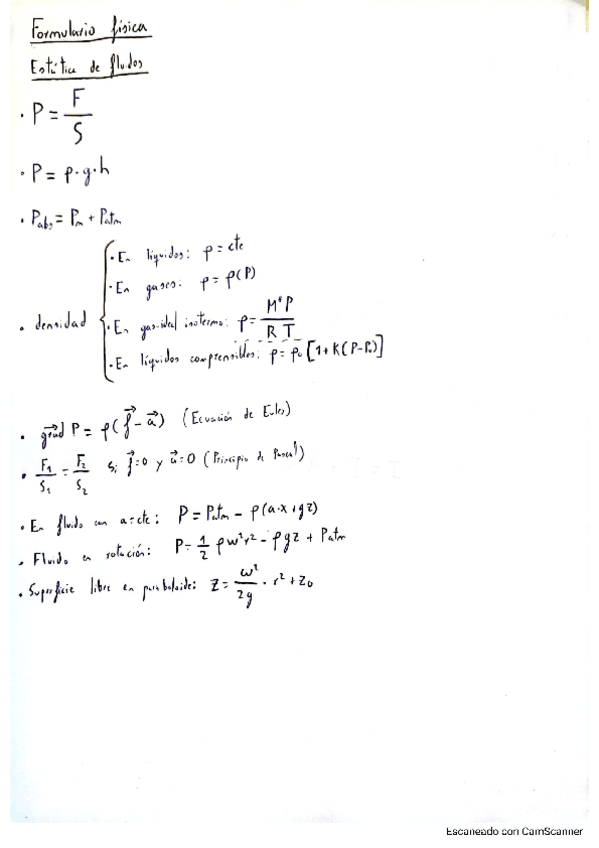 Formulario física
Estática de fluidos
• P = F/S
• P = ρ·g·h
• Pabs = Pm + Patm
• densidad { • En líquidos: ρ = cte
• En gases: ρ = ρ(P)
• En gas ideal isotermo: ρ = M*P/RT
• En líquidos comprensibles: ρ = ρ0 [1 + K(P-P0)]
• grad P = ρ(f⃗ - a⃗) (Ecuación de Euler)
• F1/S1 = F2/S2 Si f⃗=0 y a⃗=0 (Principio de Pascal)
• En fluido con a=cte: P = Patm - ρ(a·x+gz)
• Fluido en rotación: P = 1/2 ρw²r² - ρgz + Patm
• Superficie libre en paraboloide: Z = ω²/2g · r² + Z0
Escaneado con CamScanner